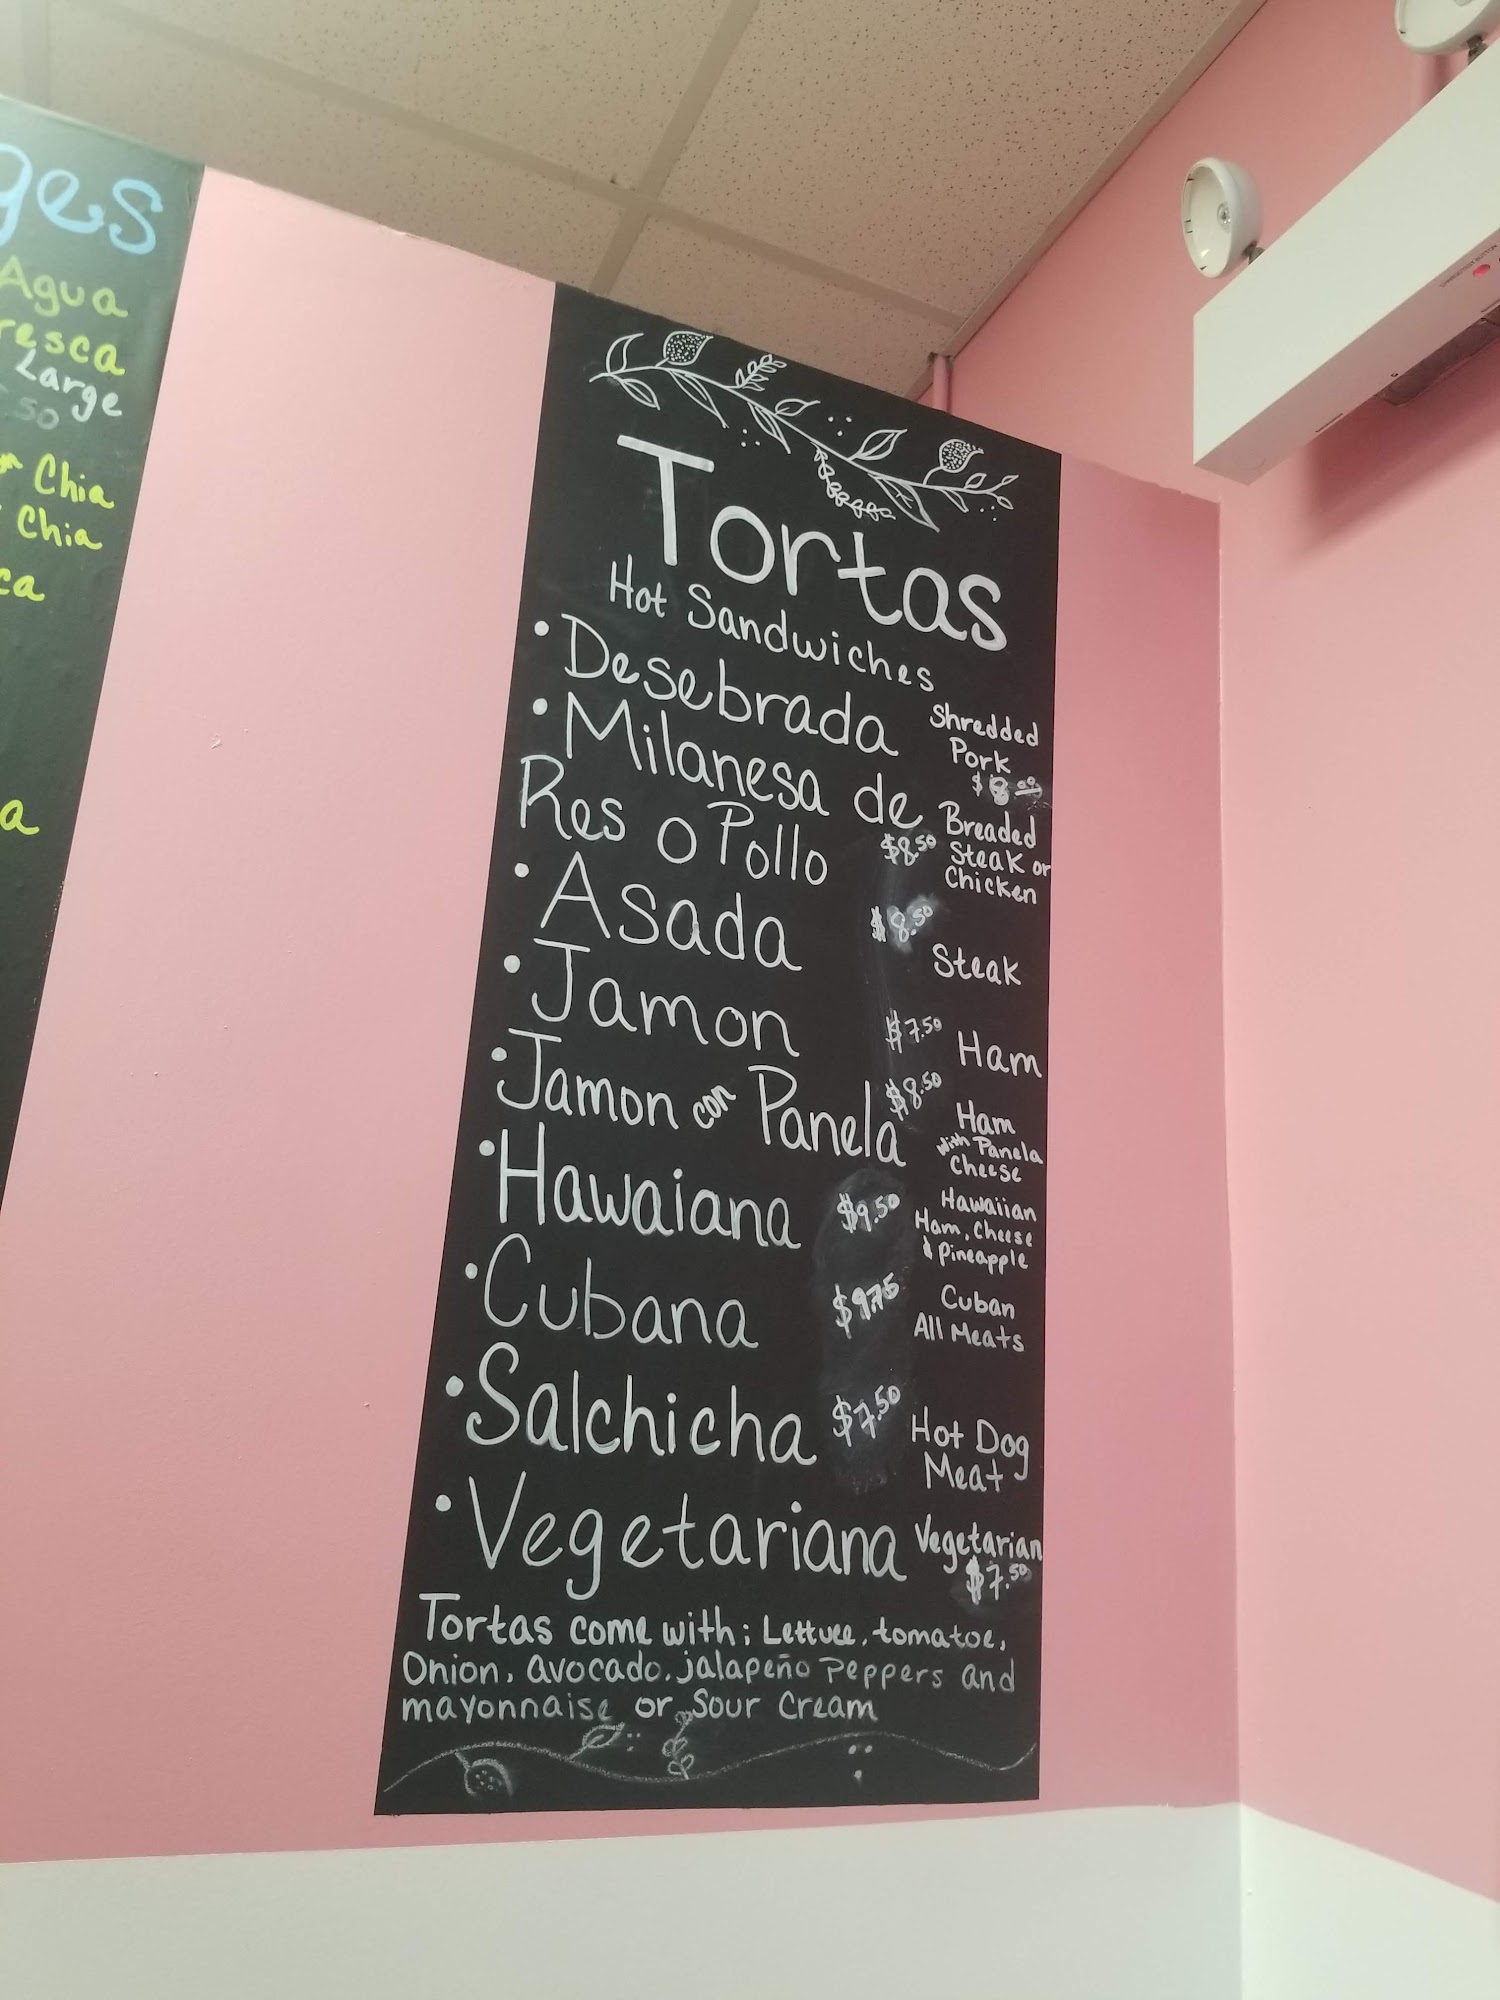 ges
Agua
resca
Large
.50
Chia
Chia
ca
a
Tortas
Hot Sandwiches
• Desebrada Shredded
Pork
$8.00
• Milanesa de Breaded
Res o Pollo $8.50 Steak or
Chicken
• Asada $8.50 Steak
• Jamon $7.50 Ham
• Jamon con Panela $8.50 Ham
with Panela
Cheese
• Hawaiana $9.50 Hawaiian
Ham, Cheese
& Pineapple
• Cubana $9.75 Cuban
All Meats
• Salchicha $7.50 Hot Dog
Meat
• Vegetariana Vegetarian
$7.50
Tortas come with; Lettuce, tomatoe,
Onion, avocado, jalapeño Peppers and
mayonnaise or Sour Cream